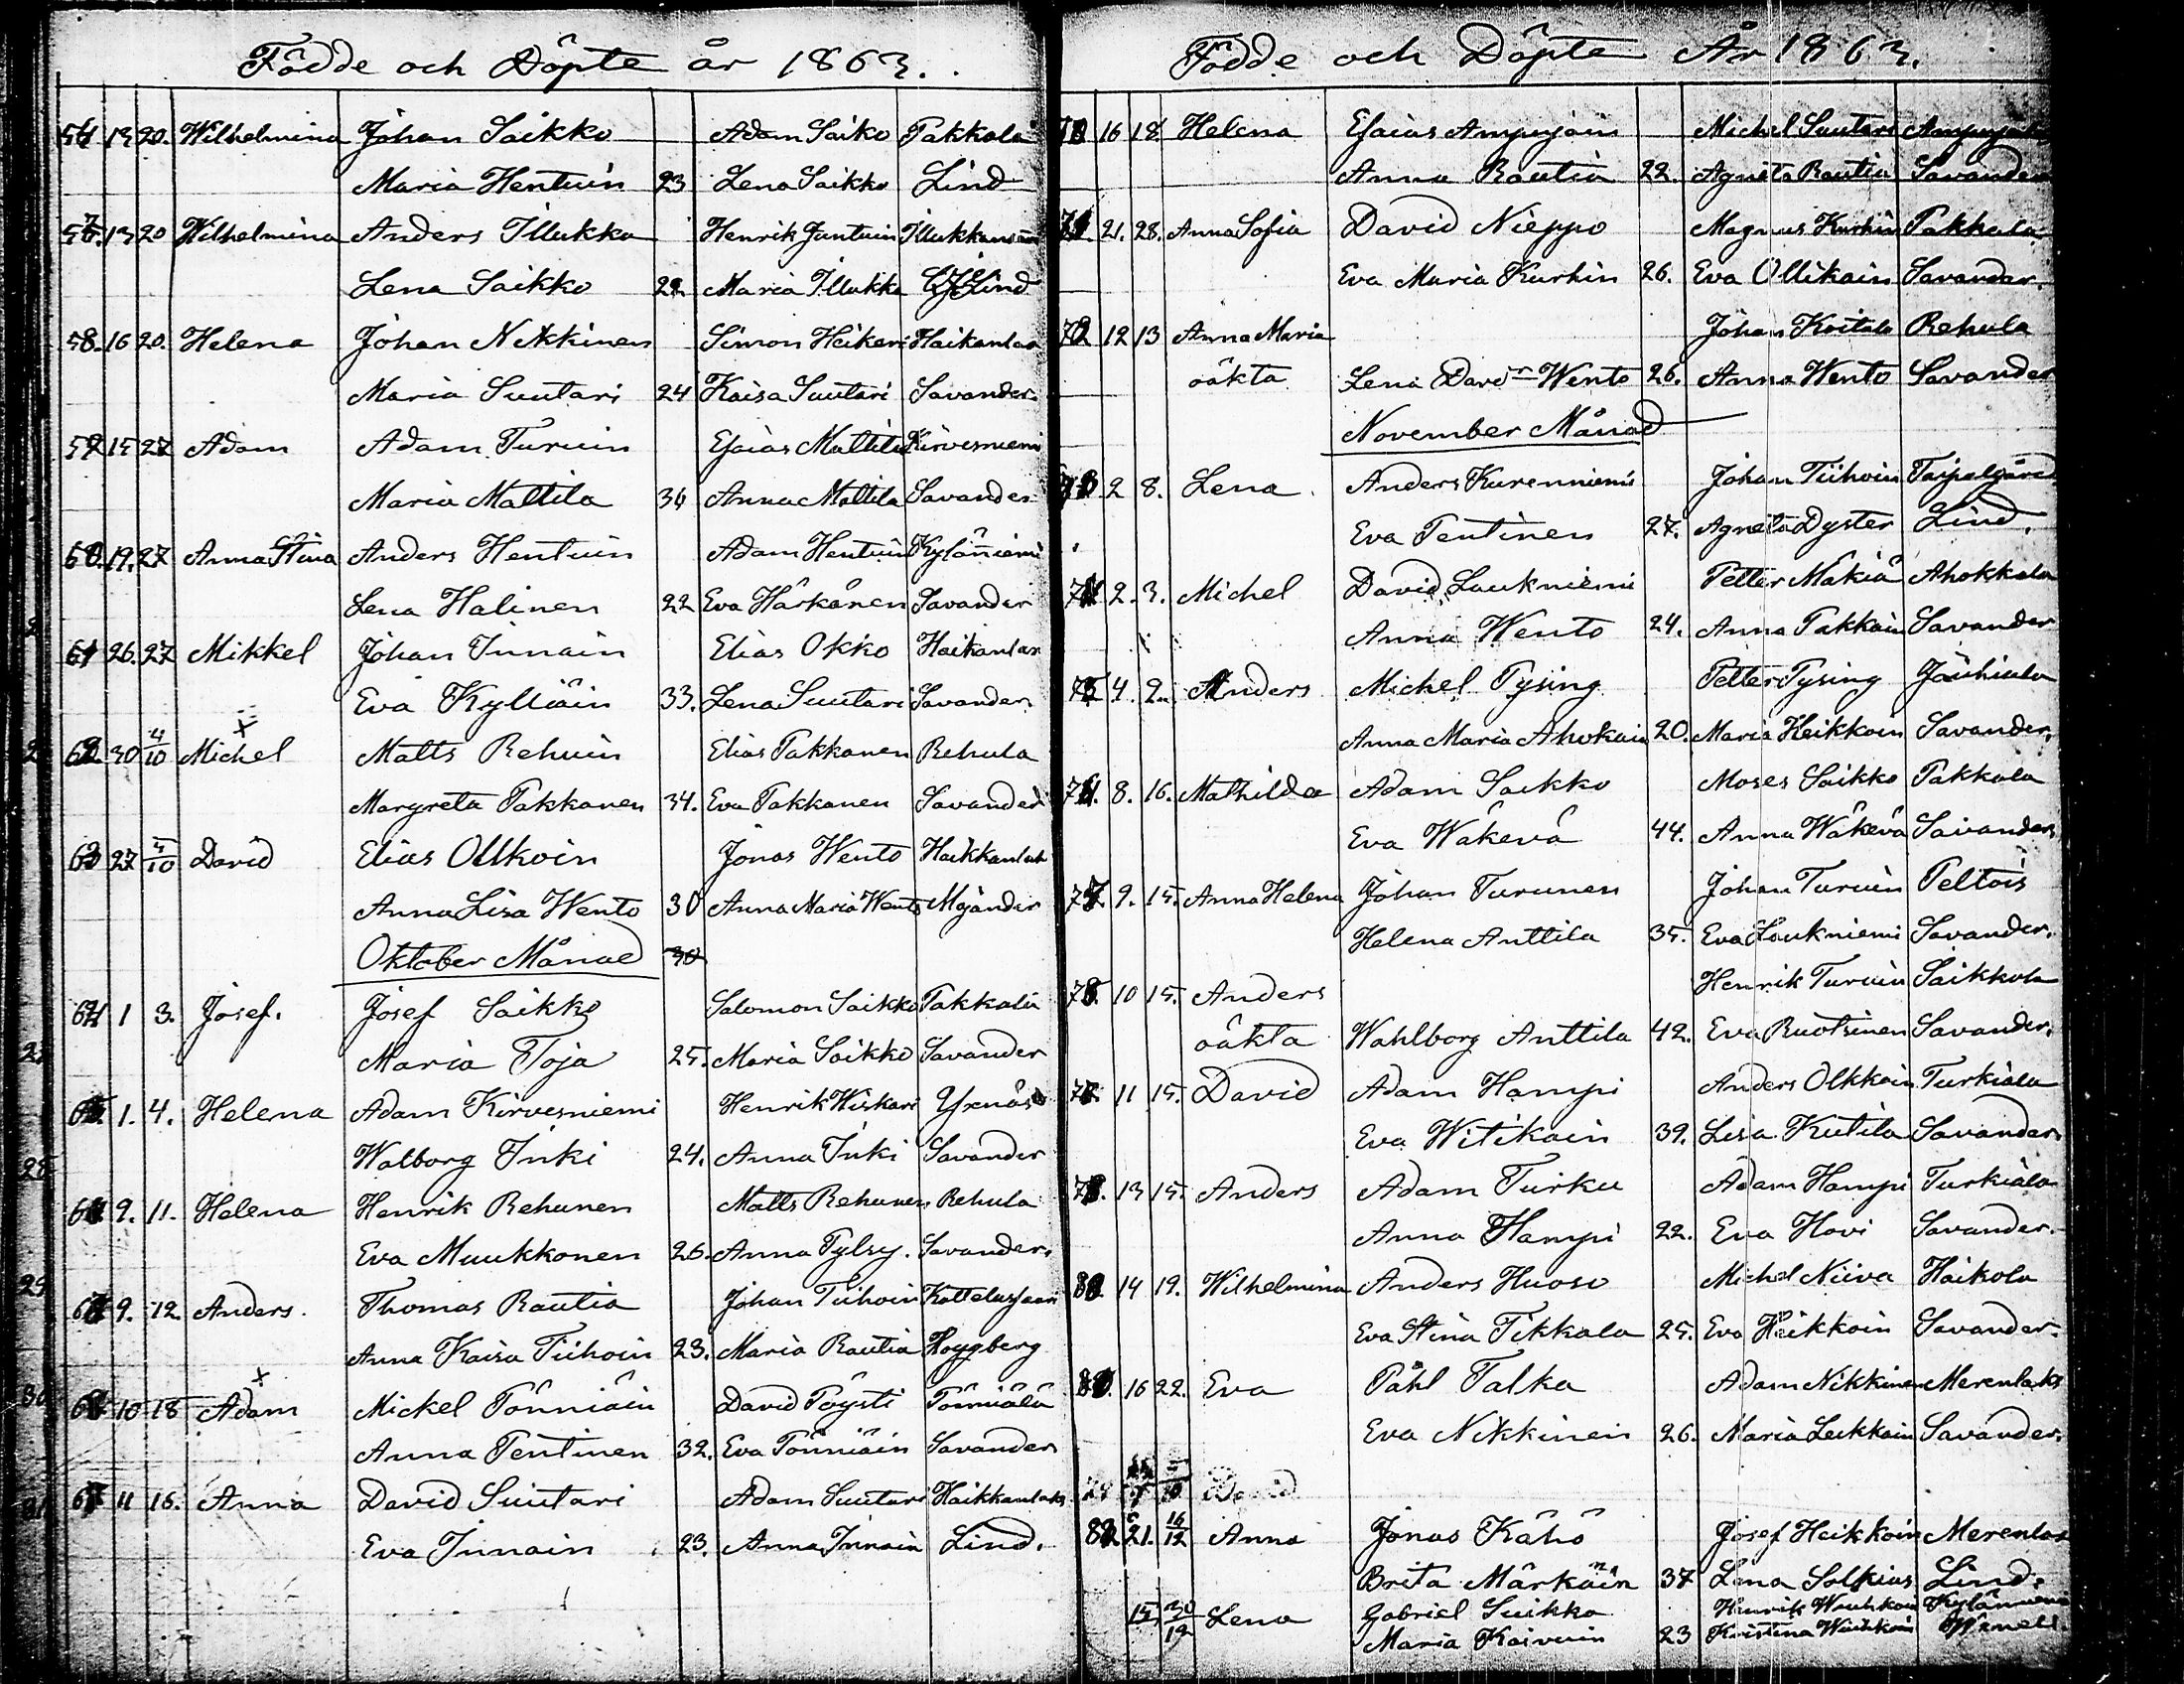 Födde och Döpte år 1863.
13 20. Wilhelmina Johan Saikko Adam Saiko Pakkola
Maria Hentuin 23 Lena Saikko Lind
57. 13 20 Wilhelmina Anders Illukka Henrik Juntuin
Lena Saikko 22 Maria Illukka Lind
58. 16 20. Helena Johan Nikkinen Simon
Maria Suutari 24 Kaisa Suutari Savander
59 15 27 Adam Adam Turuin Esaias Mattila Kirvesniemi
Maria Mattila 34 Anna Mattila Savander
60. 19. 27 Anna Stina Anders Hentuin Adam Hentuin Kylänniemi
Lena Halinen 22 Eva Härkänen Savander
61 26. 27 Mikkel Johan Innain Elias Okko
Eva Kylliäin 33. Lena Suutari Savander
62. 30 4/10 Michel Matts Rehuin Elias Pakkanen Rehula
Margreta Pakkanen 34. Eva Pakkanen Savander
63 27 4/10 David Elias Ollkoin Jonas Wento
Anna Lisa Wento 30 Anna Maria Wento Mojander
Oktober Månad 30
64 1 3. Josef. Josef Saikko Salomon Saikko Pakkola
Maria Toja 25. Maria Saikko Savander
65. 1. 4. Helena Adam Kirvesniemi Henrik Wiskari
Walborg Inki 24. Anna Inki Savander
9. 11. Helena Henrik Rehunen Matts Rehunen Rehula
Eva Muukkonen 26. Anna Pylsy. Savander.
9. 12 Anders. Thomas Rautia Johan Tiihoin
Anna Kaisa Tiihoin 23. Maria Rautia Hoygberg
10 18 Adam Mickel Pönniäin David Pöysti Pönniälä
Anna Pentinen 32. Eva Pönniäin Savander
67 11 16. Anna David Suutari Adam Suutari Haikkanlaks
Eva Innain 23. Anna Innain Lind.
Födde och Döpte År 1863.
16 18. Helena Esaias Ampujain Michel Suutari
Anna Rautia 22. Agneta Rautia Savander
21. 28. Anna Sofia David Nieppo Magnus Kurhin Pakkola
Eva Maria Kurhin 26. Eva Ollikain Savander.
12 13 Anna Maria Johan Koitala Rehula
oäkta Lena Davidr Wento 26. Anna Wento Savander
November Månad
2 8. Lena Anders Kurenniemi Johan Tiihoin
Eva Pentinen 27. Agneta Dyster Lind.
74 2. 3. Michel David Laukniemi Petter Mäkiä Ahokkala
Anna Wento 24. Anna Pakkain Savander
75 4. Anders Michel Pysing Petter Pysing
Anna Maria Ahokain 20. Maria Heikkoin Savander.
8. 16. Mathilda Adam Saikko Moses Saikko Pakkola
Eva Wäkevä 44. Anna Wäkevä Savander
77. 9. 15. Anna Helena Johan Turunen Johan Turuin Peltois
Helena Anttila 35. Eva Laukniemi Savander.
10 15. Anders Henrik Turuin Saikkola
oäkta Wahlborg Anttila 42. Eva Ruotsinen Savander.
11 15. David Adam Hampi Anders Olkkoin Turkiala
Eva Witikain 39. Lisa Kutila Savander
13 15. Anders Adam Turku Adam Hampi Turkiala
Anna Hampi 22. Eva Hovi Savander.
14 19. Wilhelmina Anders Huoso Michel Niiva Haikola
Eva Stina Tikkala 25. Eva Heikkoin Savander.
16 22. Eva Påhl Talka Adam Nikkinen Merenlaks
Eva Nikkinen 26. Maria Leikkain Savander.
David
82 21. 16/12 Anna Jonas Kähö Josef Heikkoin Merenlaks
Brita Märkäin 37 Lena Lind.
15 30/12 Lena Gabriel Suikka Henrik Kylänniemi
Maria Koivuin 23 Kristina